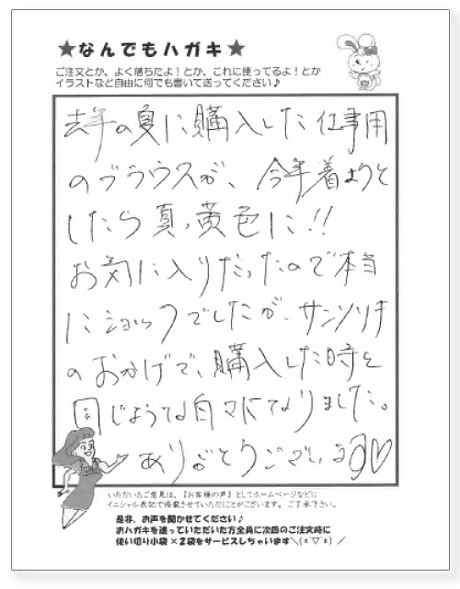 ★なんでもハガキ★
ご注文とか、よく落ちたよ！とか、これに使ってるよ！とか
イラストなど自由に何でも書いて送ってください♪
去年の夏に購入した仕事用
のブラウスが、今年着ようと
したら真っ黄色に!!
お気に入りだったので本当
にショックでしたが、サンソリキ
のおかげで、購入した時と
同じような白さになりました。
ありがとうございます♡
いただいたご意見は、『お客様の声』としてホームページなどに
イニシャル表記で掲載させていただくことがございます。 ご了承下さい。
是非、お声を聞かせてください♪
おハガキを送っていただいた方全員に次回のご注文時に
使い切り小袋×2袋をサービスしちゃいます＼(*￣▽￣*)／